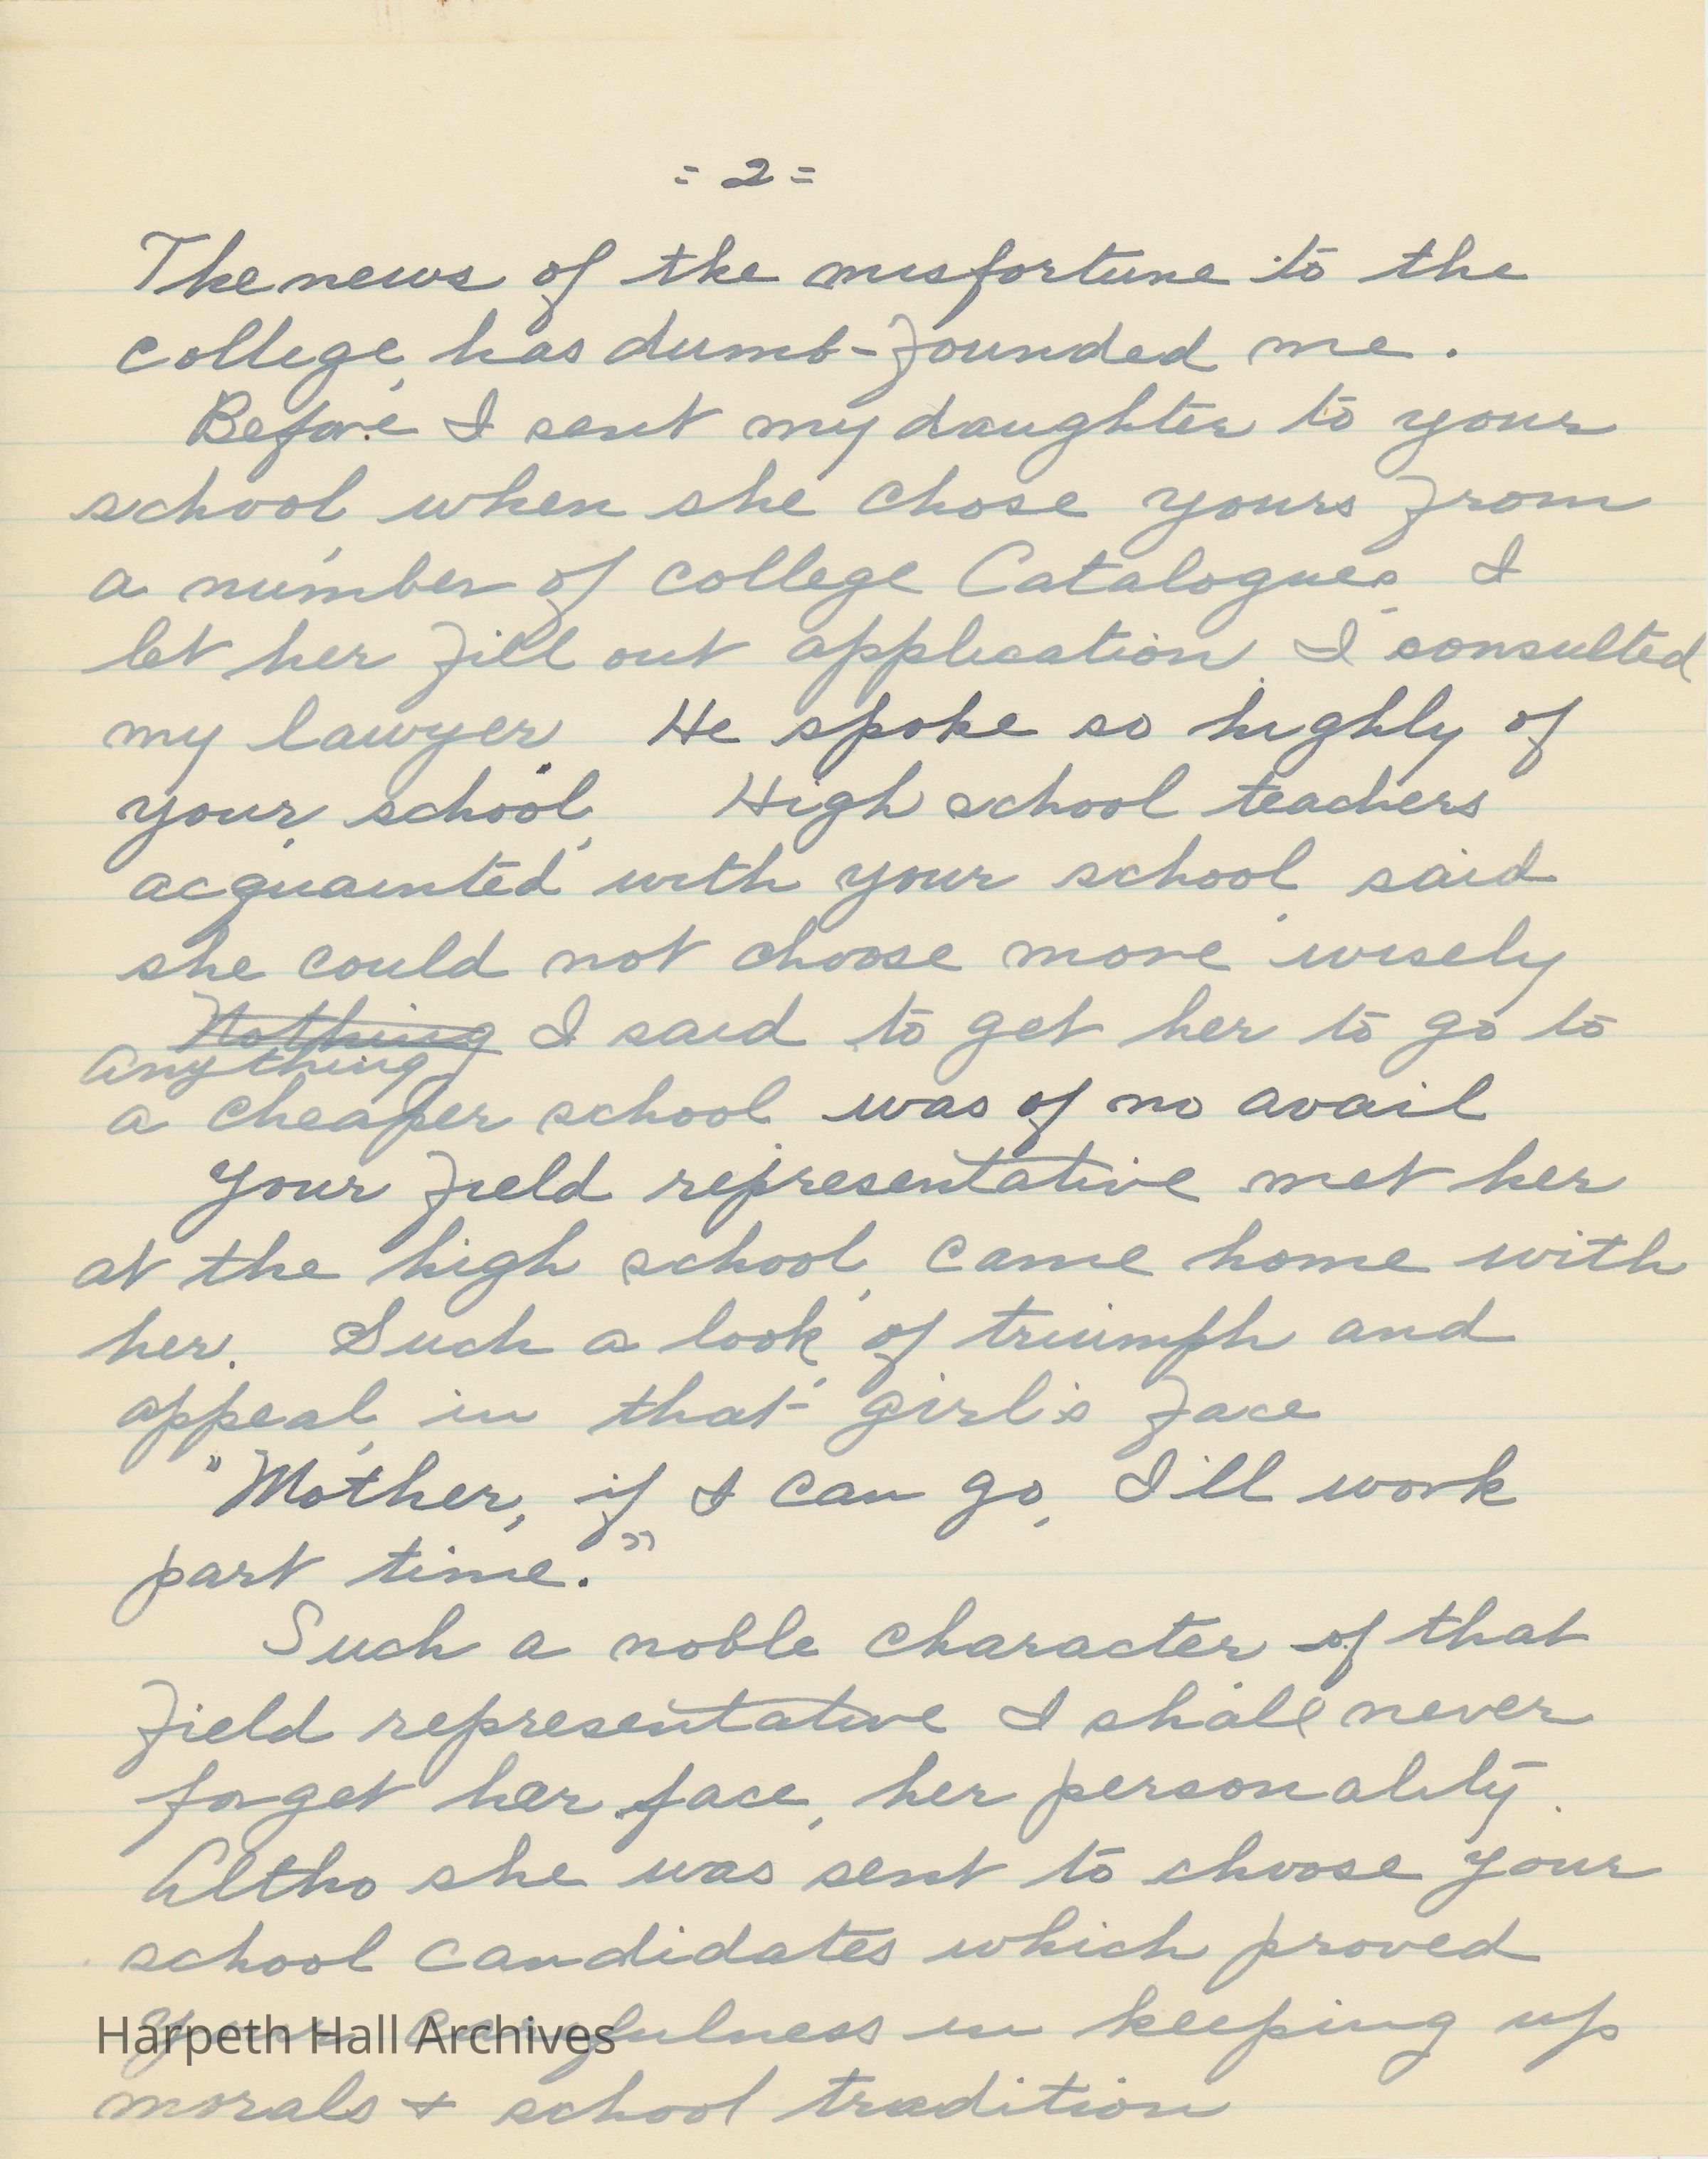 = 2 =
The news of the misfortune to the
college, has dumb-founded me.
Before I sent my daughter to your
school, when she chose yours from
a number of college Catalogues, I
let her fill out application. I consulted
my lawyer. He spoke so highly of
your school. High school teachers
acquainted with your school, said
she could not choose more wisely
Nothing I said to get her to go to
Anything
a cheaper school was of no avail
Your field representative met her
at the high school, came home with
her. Such a look, of triumph and
appeal, in that girl's face
"Mother, if I can go, I'll work
part time."
Such a noble character of that
field representative I shall never
forget her face, her personality.
Altho she was sent to choose your
school candidates which proved
your carefulness in keeping up
morals + school tradition
Harpeth Hall Archives